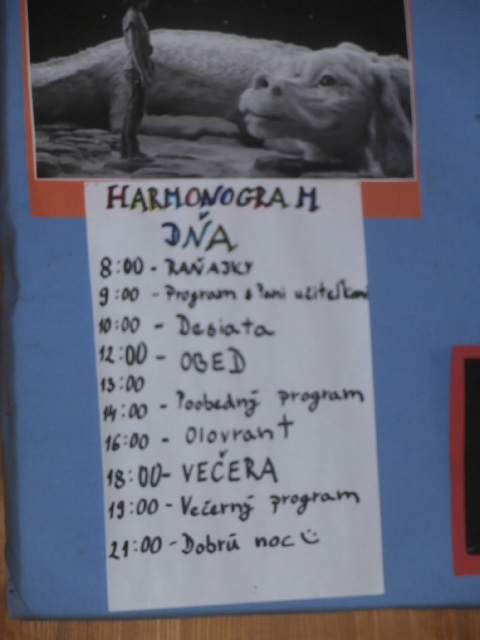 HARMONOGRAM
DŇA
8:00 - RAŇAJKY
9:00 - Program s Pani učiteľkami
10:00 - Desiata
12:00 - OBED
13:00
14:00 - Poobedný program
16:00 - Olovrant
18:00 - VEČERA
19:00 - Večerný program
21:00 - Dobrú noc